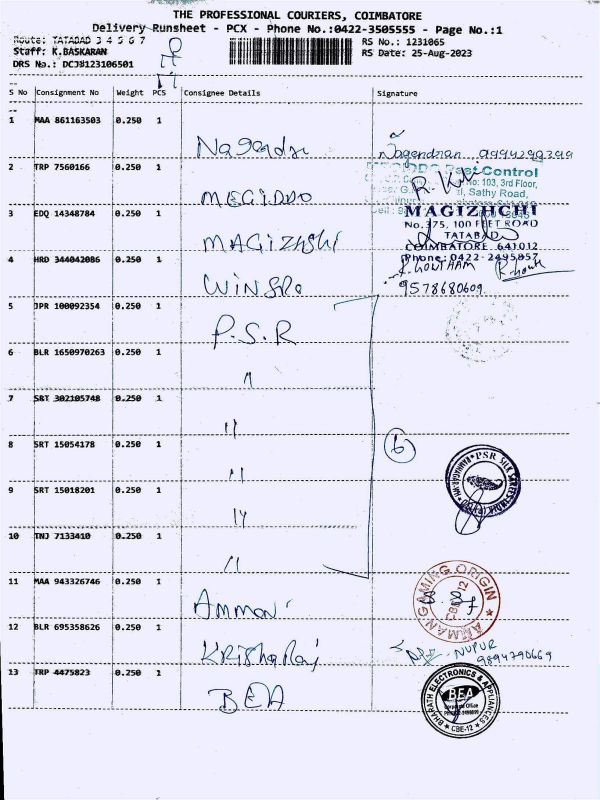 THE PROFESSIONAL COURIERS, COIMBATORE
Delivery Runsheet - PCX - Phone No.:0422-3505555 - Page No.:1
Route: TATABAD 3 4 5 6 7
RS No.: 1231065
Staff: K.BASKARAN
RS Date: 25-Aug-2023
DRS No.: DCJB123106501
S No Consignment No Weight PCS Consignee Details Signature
1 MAA 861163503 0.250 1
Nagendran 9994299399
2 TRP 7560166 0.250 1
Pest Control
No: 103, 3rd Floor,
Sathy Road,
MEGIDDO
3 EDQ 14348784 0.250 1
MAGIZHCHI
No.375, 100 FEET ROAD
TATABAD
MAGIZHSHI
COIMBATORE 641012
4 HRD 344042086 0.250 1
Phone: 0422-2495857
R. GOWTHAM
9578680609
5 JPR 100092354 0.250 1
P.S.R
6 BLR 1650970263 0.250 1
"
7 SBT 302105748 0.250 1
"
8 SRT 15054178 0.250 1
6
"
PSR SILK SAREES
9 SRT 15018201 0.250 1
"
10 TNJ 7133410 0.250 1
"
11 MAA 943326746 0.250 1
GAMING ORIGIN
12 BLR 695358626 0.250 1
NUPUR
9894790669
13 TRP 4475823 0.250 1
BEA
BHARATH ELECTRONICS & APPLIANCES
BEA
CBE-12